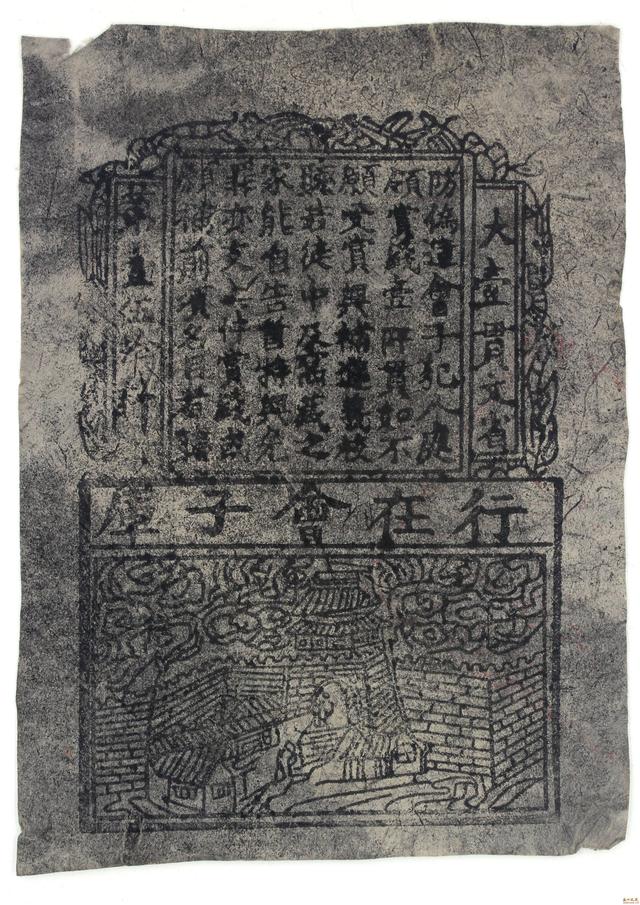 大壹貫文省
偽造會子犯人處
賞錢壹阡貫如不
願支賞與補進義校
若徒中及窩藏之
家能自告首特與免
亦支上件賞錢或
願補前項名目者
第壹伍拾料
行在會子庫